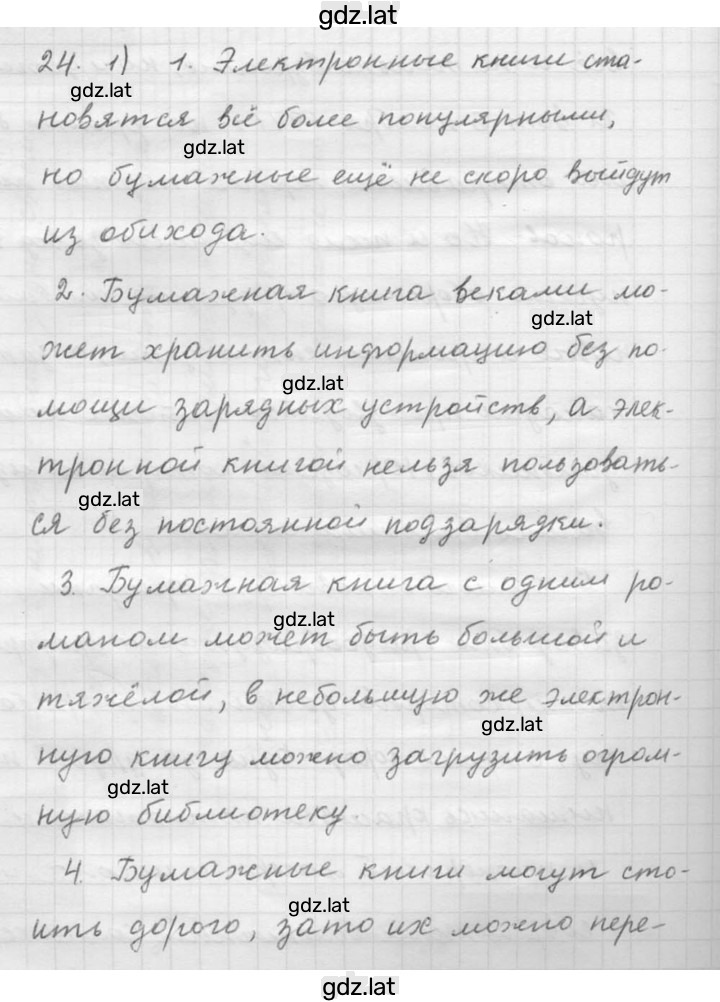 gdz.lat
24. 1) 1. Электронные книги ста-
gdz.lat
новятся всё более популярными,
gdz.lat
но бумажные ещё не скоро выйдут
из обихода.
2. Бумажная книга веками мо-
gdz.lat
жет хранить информацию без по-
gdz.lat
мощи зарядных устройств, а элек-
тронной книгой нельзя пользовать-
gdz.lat
ся без постоянной подзарядки.
3. Бумажная книга с одним ро-
gdz.lat
маном может быть большой и
тяжёлой, в небольшую же электрон-
gdz.lat
ную книгу можно загрузить огром-
gdz.lat
ную библиотеку.
4. Бумажные книги могут сто-
gdz.lat
ить дорого, зато их можно пере-
gdz.lat